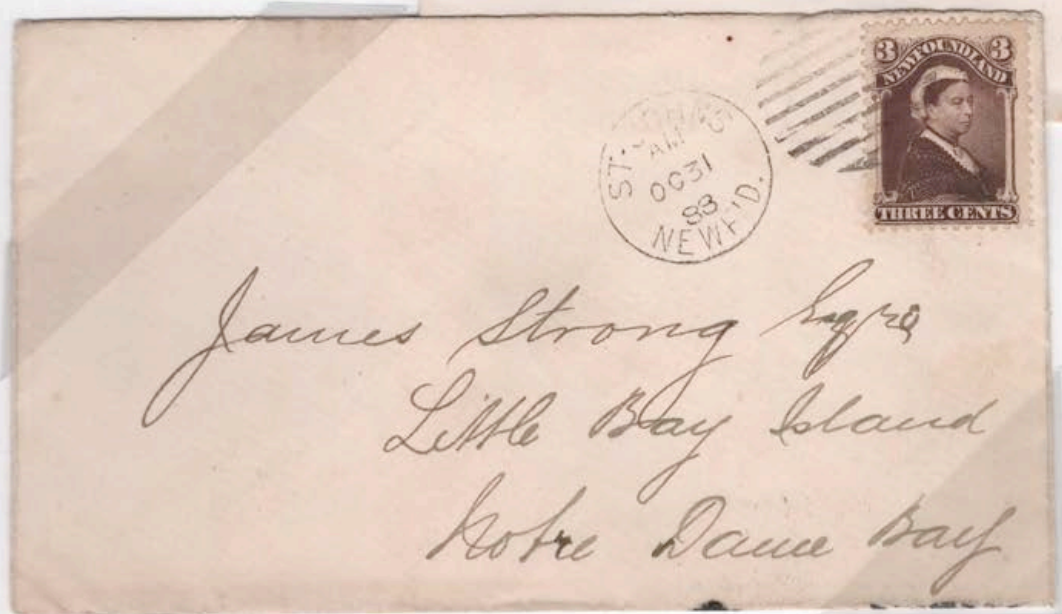 3 NEWFOUNDLAND 3
THREE CENTS
ST. JOHN'S
AM 5
OC 31
88
NEWF'D.
James Strong Esqre
Little Bay Island
Notre Dame Bay